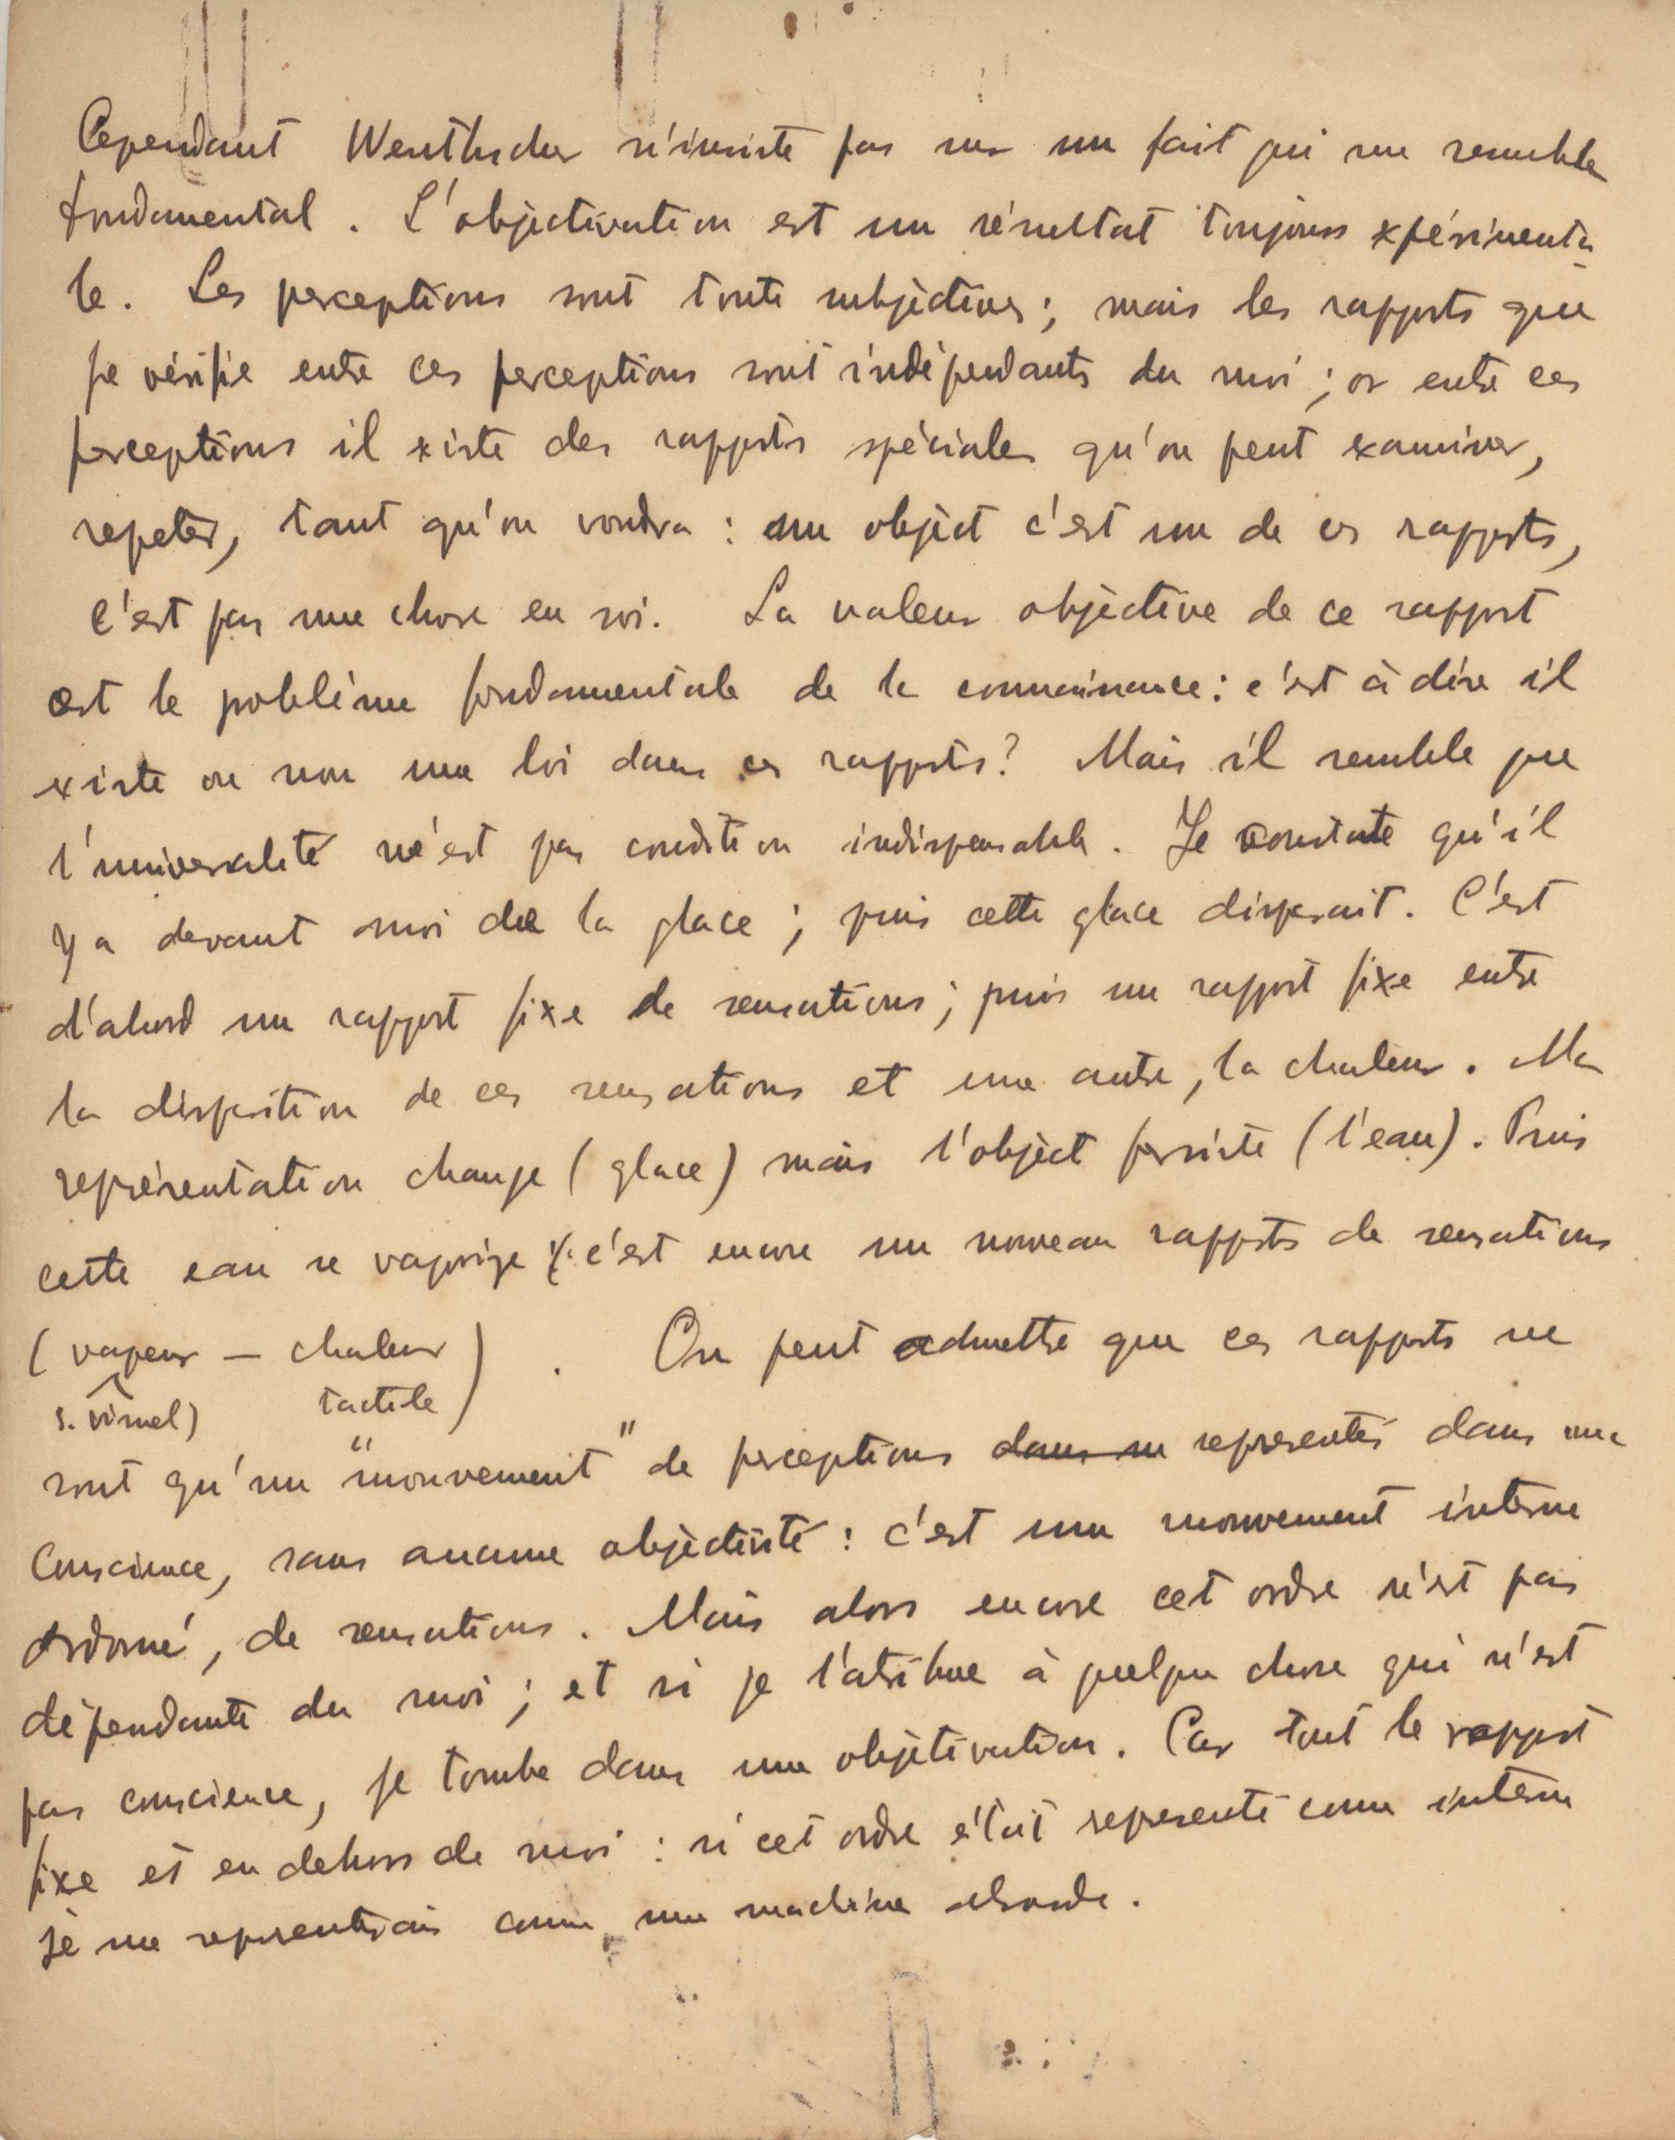 Cependant Wentscher n'insiste pas sur un fait qui me semble
fondamental. L'objectivation est un résultat toujours expérimenta-
le. Les perceptions sont toute subjectives; mais les rapports que
je vérifie entre ces perceptions sont indépendants du moi; or entre ces
perceptions il existe des rapports spéciales qu'on peut examiner,
repeter, tant qu'on voudra: un object c'est un de ces rapports,
c'est pas une chose en soi. La valeur objective de ce rapport
est le poblème fondamentale de la connaissance: c'est à dire il
existe ou non une loi dans ces rapports? Mais il semble que
l'universalité n'est pas condition indispensable. Je constate qu'il
y a devant moi de la glace; puis cette glace disparait. C'est
d'abord un rapport fixe de sensations; puis un rapport fixe entre
la disparition de ces sensations et une autre, la chaleur. Ma
représentation change (glace) mais l'object persiste (l'eau). Puis
cette eau se vaporize c'est encore un nouveau rapports de sensations
(vapeur — chaleur).
s. visuel) tactile
On peut admettre que ces rapports ne
sont qu'un "mouvement" de perceptions representés dans une
Conscience, sans aucune objectivité: c'est un mouvement interne
ordonné, de sensations. Mais alors encore cet ordre n'est pas
dépendante du moi; et si je l'atribue à quelque chose qui n'est
pas conscience, je tombe dans une objetivation. Car tout le rapport
fixe et en dehors de moi: si cet ordre était representé comme interne
je me representerais comme une machine absurde.